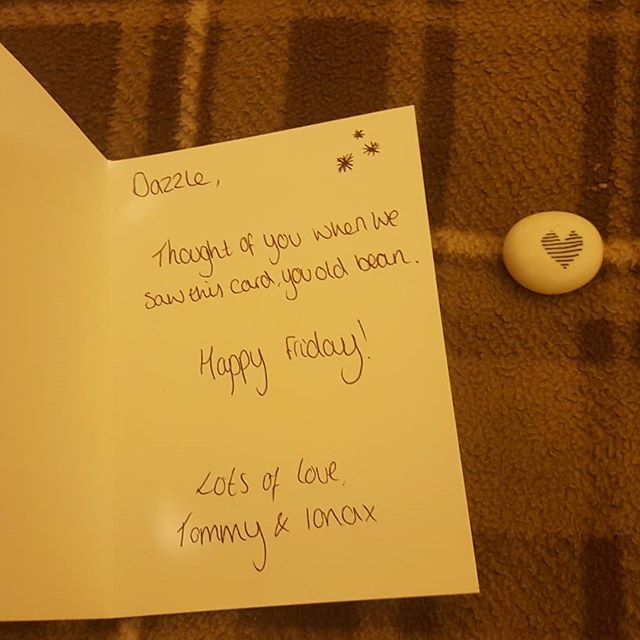 Dazzle,
Thought of you when we
saw this card, you old bean.
Happy Friday!
Lots of love,
Tommy & Iona x